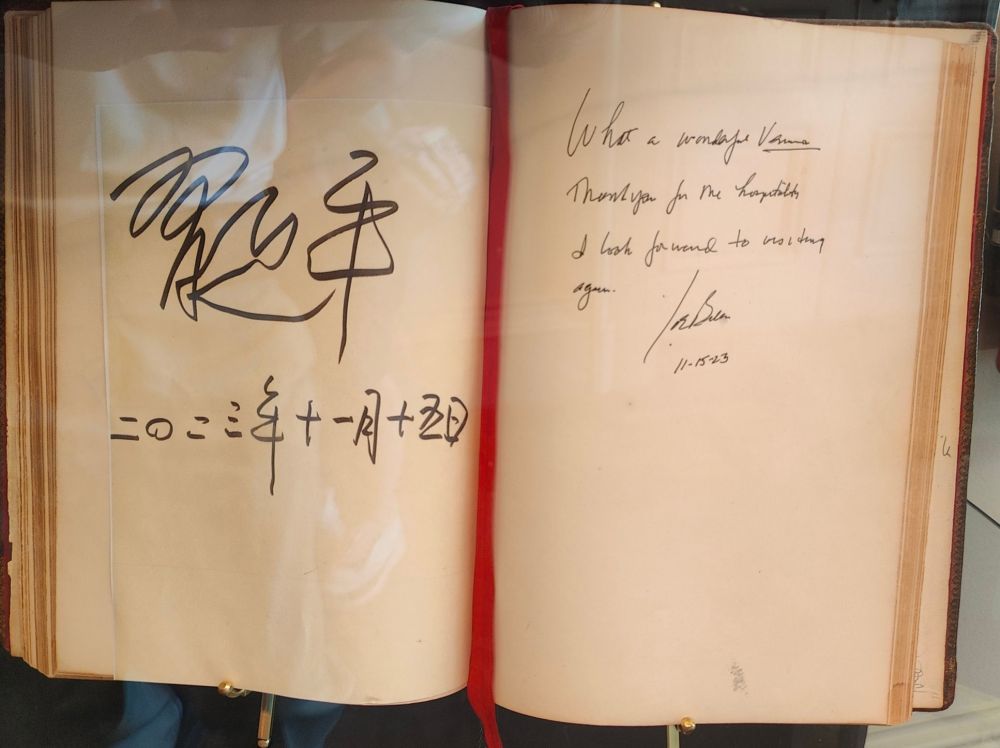 習近平
二〇二三年十一月十五日
What a wonderful Venue
Thank you for the hospitality
I look forward to visiting
again.
Joe Biden
11-15-23